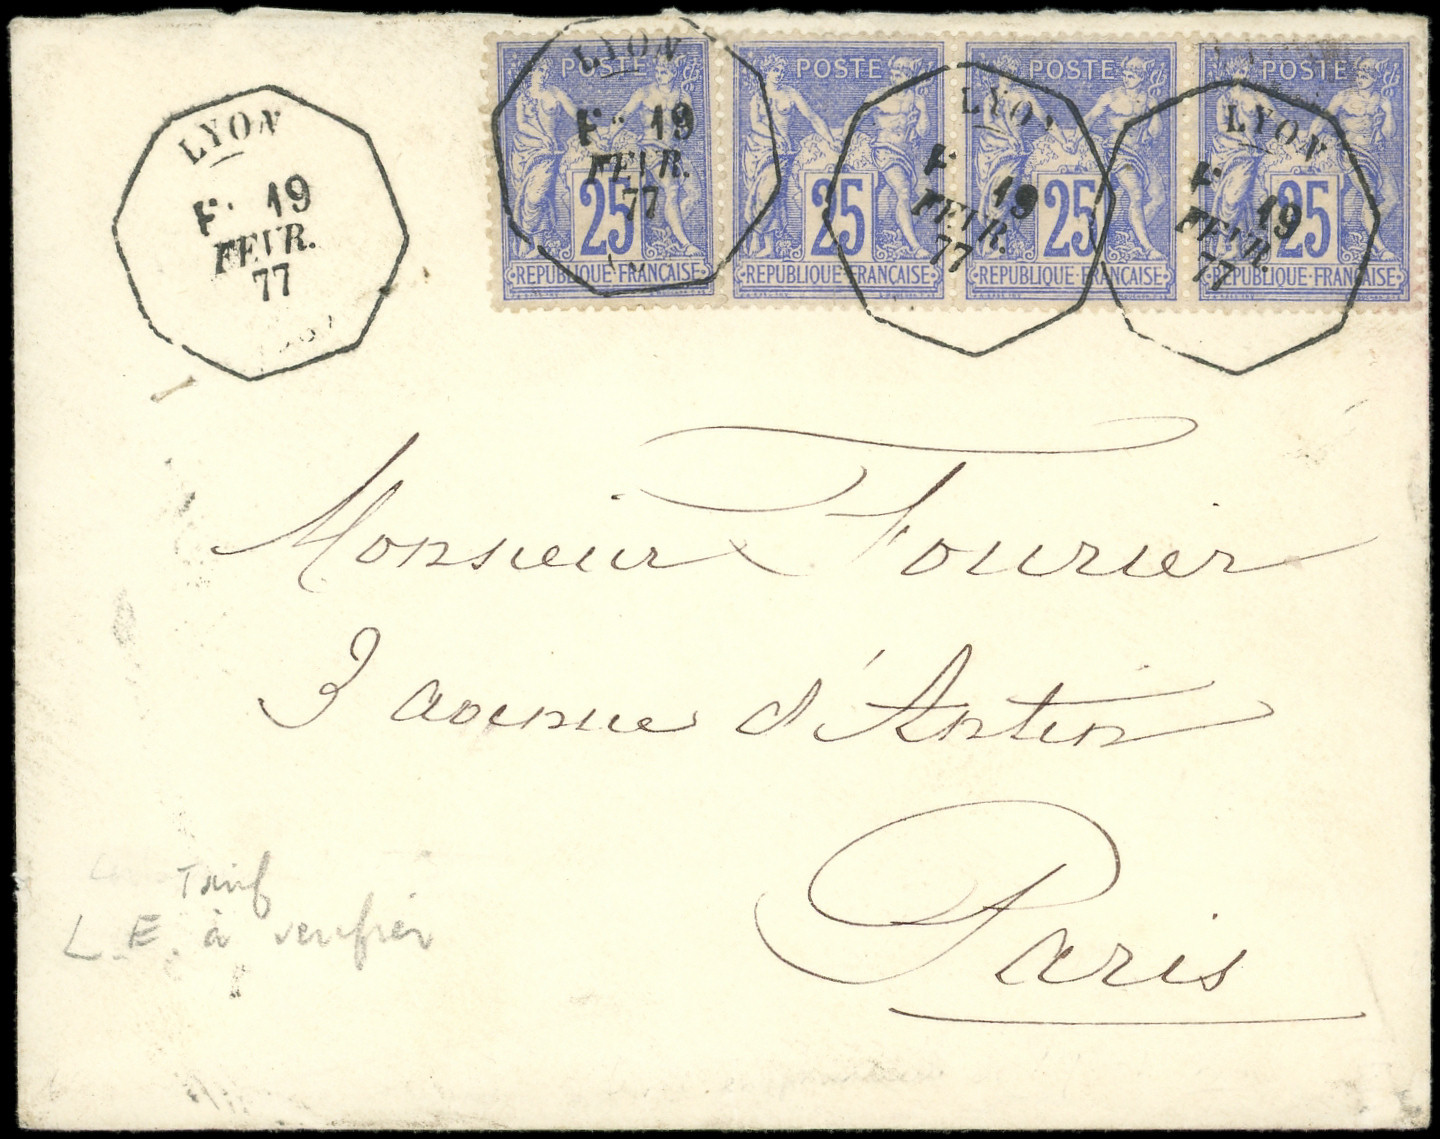 LYON
F· 19
FEVR.
77
POSTE
25
REPUBLIQUE·FRANÇAISE
LYON
F· 19
FEVR.
77
POSTE
25
REPUBLIQUE·FRANÇAISE
POSTE
25
REPUBLIQUE·FRANÇAISE
LYON
F· 19
FEVR.
77
POSTE
25
REPUBLIQUE·FRANÇAISE
LYON
F· 19
FEVR.
77
Monsieur Fourier
3 avenue d'Antin
Paris
Tarif
L.E. à verifier